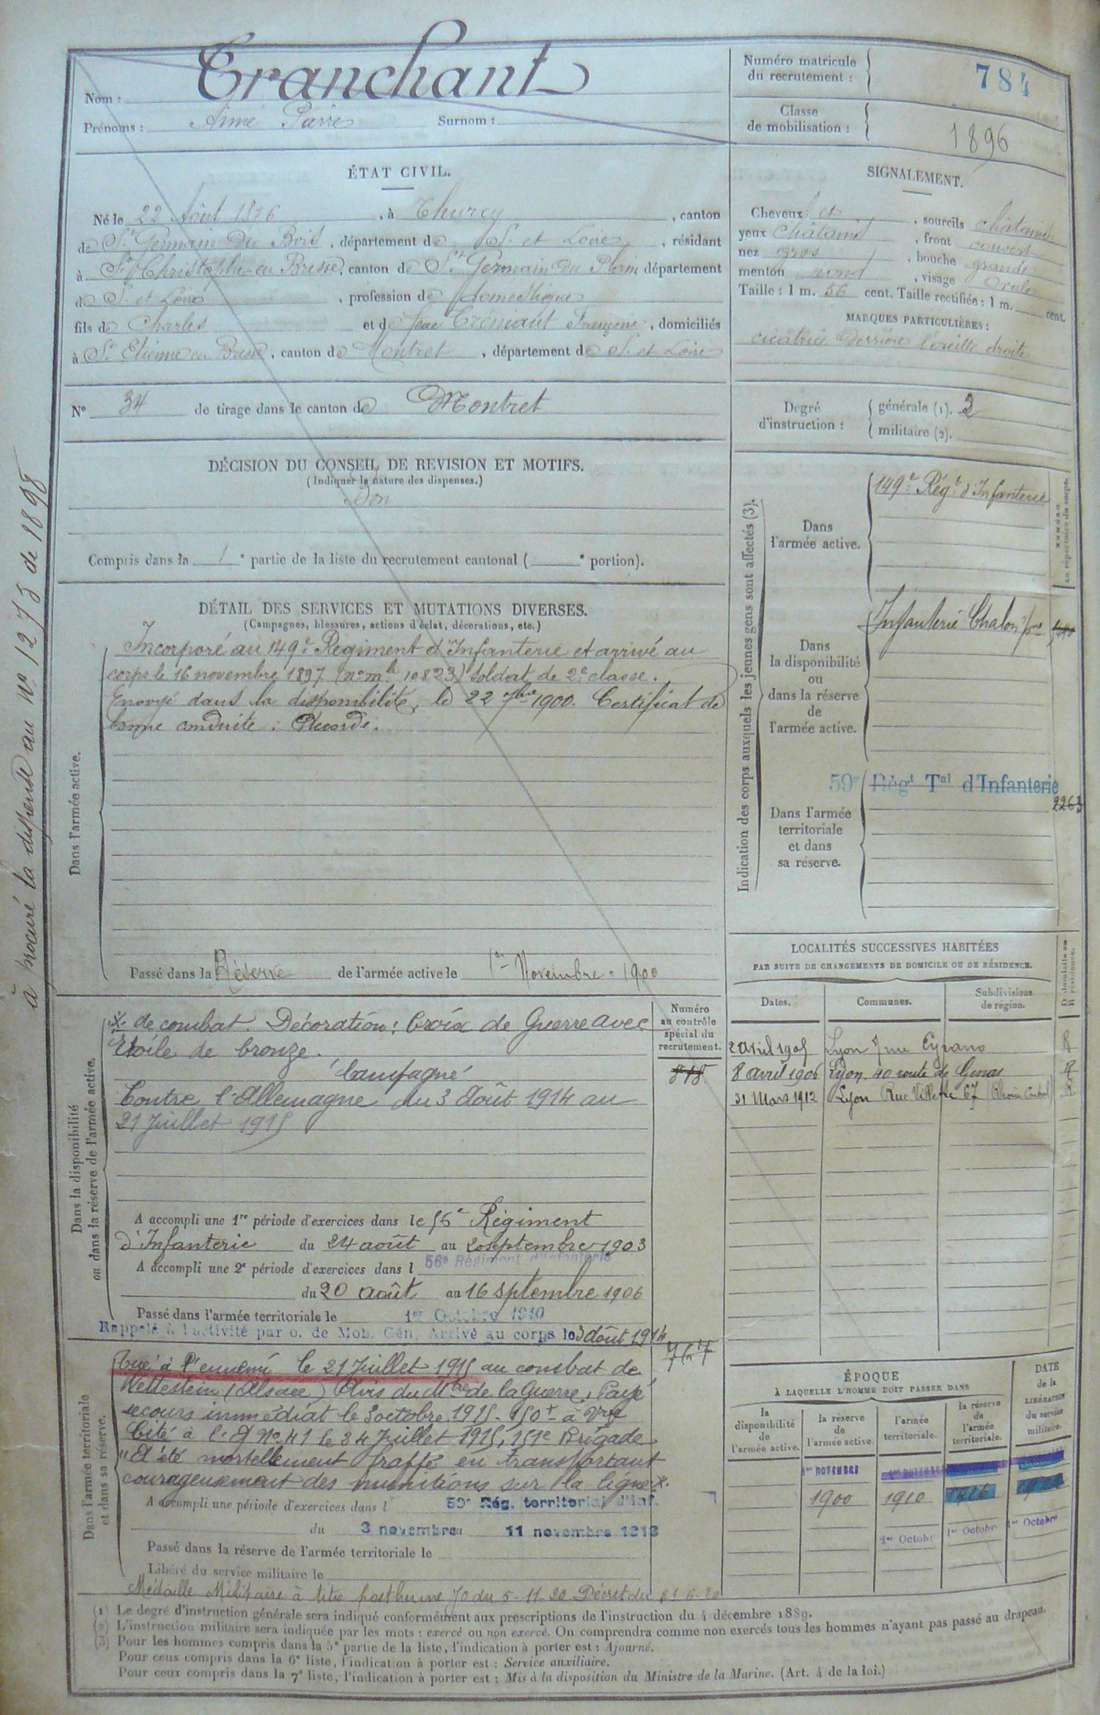 Tranchant
Nom :
Prénoms : Aimé Pierre Surnom :
Numéro matricule du recrutement : 784
Classe de mobilisation : 1896
ÉTAT CIVIL.
Né le 22 Août 1876, à Thurey, canton
de St Germain du Bois, département de S. et Loire, résidant
à St Christophe en Bresse, canton de St Germain du Plain département
de S. et Loire, profession de domestique
fils de Charles et de Françoise, domiciliés
à St Etienne en Bresse, canton de Montret, département de S. et Loire
N° 34 de tirage dans le canton de Montret
SIGNALEMENT.
Cheveux et, sourcils châtains
yeux châtains, front couvert
nez gros, bouche grande
menton rond, visage ovale
Taille : 1 m. 56 cent. Taille rectifiée : 1 m. cent.
MARQUES PARTICULIÈRES :
cicatrice derrière l'oreille droite
Degré d'instruction :
générale (1). 2
militaire (2).
DÉCISION DU CONSEIL DE REVISION ET MOTIFS.
(Indiquer la nature des dispenses.)
Bon
Compris dans la 1e partie de la liste du recrutement cantonal ( e portion).
à procuré la dispense au N° 1273 de 1898
DÉTAIL DES SERVICES ET MUTATIONS DIVERSES.
(Campagnes, blessures, actions d'éclat, décorations, etc.)
Dans l'armée active.
Incorporé au 149e Régiment d'Infanterie et arrivé au
corps le 16 novembre 1897 (n° mle 10823) soldat de 2e classe.
Envoyé dans la disponibilité, le 22 7bre 1900. Certificat de
bonne conduite : Accordé.
Passé dans la Réserve de l'armée active le 1er Novembre 1900
Indication des corps auxquels les jeunes gens sont affectés (3).
Dans l'armée active.
149e Régt d'Infanterie
Dans la disponibilité ou dans la réserve de l'armée active.
Infanterie Chalon
Dans l'armée territoriale et dans sa réserve.
59e Régt Tal d'Infanterie
2263
LOCALITÉS SUCCESSIVES HABITÉES
PAR SUITE DE CHANGEMENTS DE DOMICILE OU DE RÉSIDENCE.
Dates. Communes. Subdivisions de région.
2 avril 1905 Lyon 7 rue Cyrano R
8 avril 1906 Lyon 40 route de Genas R
21 Mars 1912 Lyon Rue Villette 67 R
Dans la disponibilité ou dans la réserve de l'armée active.
Numéro au contrôle spécial du recrutement.
818
de combat. Décoration : Croix de Guerre avec
Etoile de bronze.
Campagne
Contre l'Allemagne du 3 Août 1914 au
21 Juillet 1915
A accompli une 1re période d'exercices dans le 56e Régiment
d'Infanterie du 24 août au 20 septembre 1903
A accompli une 2e période d'exercices dans l 56e Régiment d'Infanterie
du 20 août au 16 septembre 1906
Passé dans l'armée territoriale le 1er Octobre 1910
Rappelé à l'activité par o. de Mob. Gén. Arrivé au corps le 3 août 1914
767
Dans l'armée territoriale et dans sa réserve.
Tué à l'ennemi le 21 Juillet 1915 au combat de
Rettestein (Alsace) Avis du Mtre de la Guerre. Payé
secours immédiat le 8 octobre 1915. 150f à Vve
Cité à l'O N° 41 le 24 Juillet 1915, 151e Brigade
"A été mortellement frappé en transportant
courageusement des munitions sur la ligne
A accompli une période d'exercices dans l 59e Rég. territorial d'Inf.
du 3 novembre au 11 novembre 1913
Passé dans la réserve de l'armée territoriale le
Libéré du service militaire le
Médaille Militaire à titre posthume JO du 5-11.20
ÉPOQUE
À LAQUELLE L'HOMME DOIT PASSER DANS
la disponibilité de l'armée active.
la réserve de l'armée active.
l'armée territoriale.
la réserve de l'armée territoriale.
DATE de la LIBÉRATION du service militaire.
1er NOVEMBRE
1900 1910
1er Octobre 1er Octobre 1er Octobre
(1) Le degré d'instruction générale sera indiqué conformément aux prescriptions de l'instruction du 4 décembre 1889.
(2) L'instruction militaire sera indiquée par les mots : exercé ou non exercé. On comprendra comme non exercés tous les hommes n'ayant pas passé au drapeau.
(3) Pour les hommes compris dans la 5e partie de la liste, l'indication à porter est : Ajourné.
Pour ceux compris dans la 6e liste, l'indication à porter est : Service auxiliaire.
Pour ceux compris dans la 7e liste, l'indication à porter est : Mis à la disposition du Ministre de la Marine. (Art. 4 de la loi.)